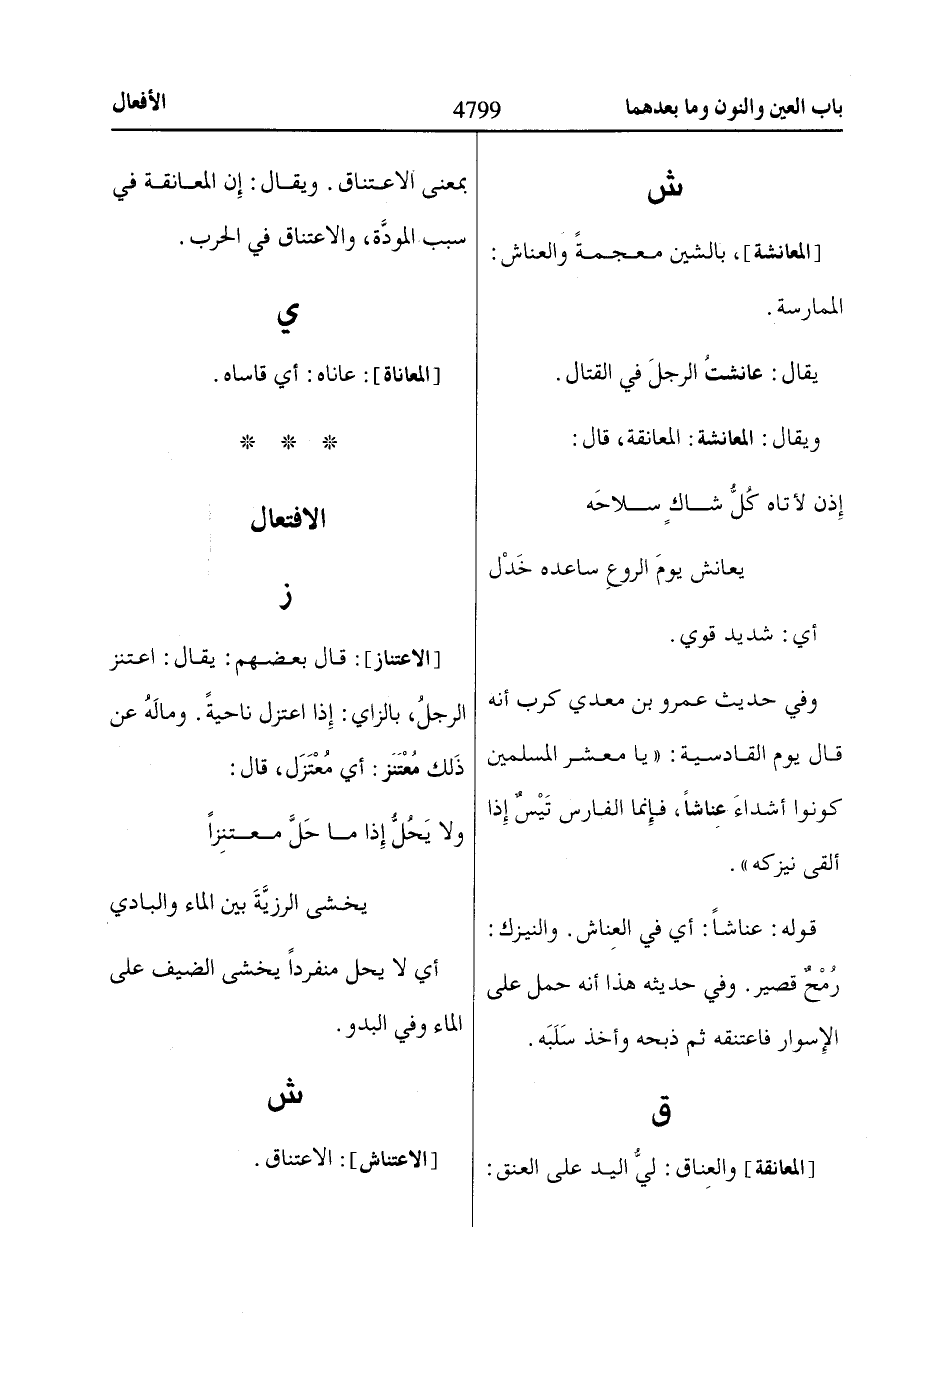 باب العين والنون وما بعدهما 4799 الأفعال
ش
[المعانشة]، بالشين معجمةً والعناش:
الممارسة.
يقال: عانشتُ الرجلَ في القتال.
ويقال: المعانشة: المعانقة، قال:
إِذن لأتاه كُلُّ شاكٍ سلاحَه
يعانش يومَ الروعِ ساعده خَدْل
أي: شديد قوي.
وفي حديث عمرو بن معدي كرب أنه
قال يوم القادسية: «يا معشر المسلمين
كونوا أشداءَ عِناشاً، فإنما الفارس تَيْسٌ إِذا
ألقى نيزكه».
قوله: عناشاً: أي في العِناش. والنيزك:
رُمْحٌ قصير. وفي حديثه هذا أنه حمل على
الإِسوار فاعتنقه ثم ذبحه وأخذ سَلَبَه.
ق
[المعانقة] والعِناق: ليُّ اليد على العنق:
بمعنى الاعتناق. ويقال: إِن المعانقة في
سبب المودَّة، والاعتناق في الحرب.
ي
[المعاناة]: عاناه: أي قاساه.
* * *
الافتعال
ز
[الاعتناز]: قال بعضهم: يقال: اعتنز
الرجلُ، بالزاي: إِذا اعتزل ناحيةً. ومالَهُ عن
ذَلك مُعْتَنَز: أي مُعْتَزَل، قال:
ولا يَحُلُّ إِذا ما حَلَّ معتنِزاً
يخشى الرزيَّةَ بين الماء والبادي
أي لا يحل منفرداً يخشى الضيف على
الماء وفي البدو.
ش
[الاعتناش]: الاعتناق.